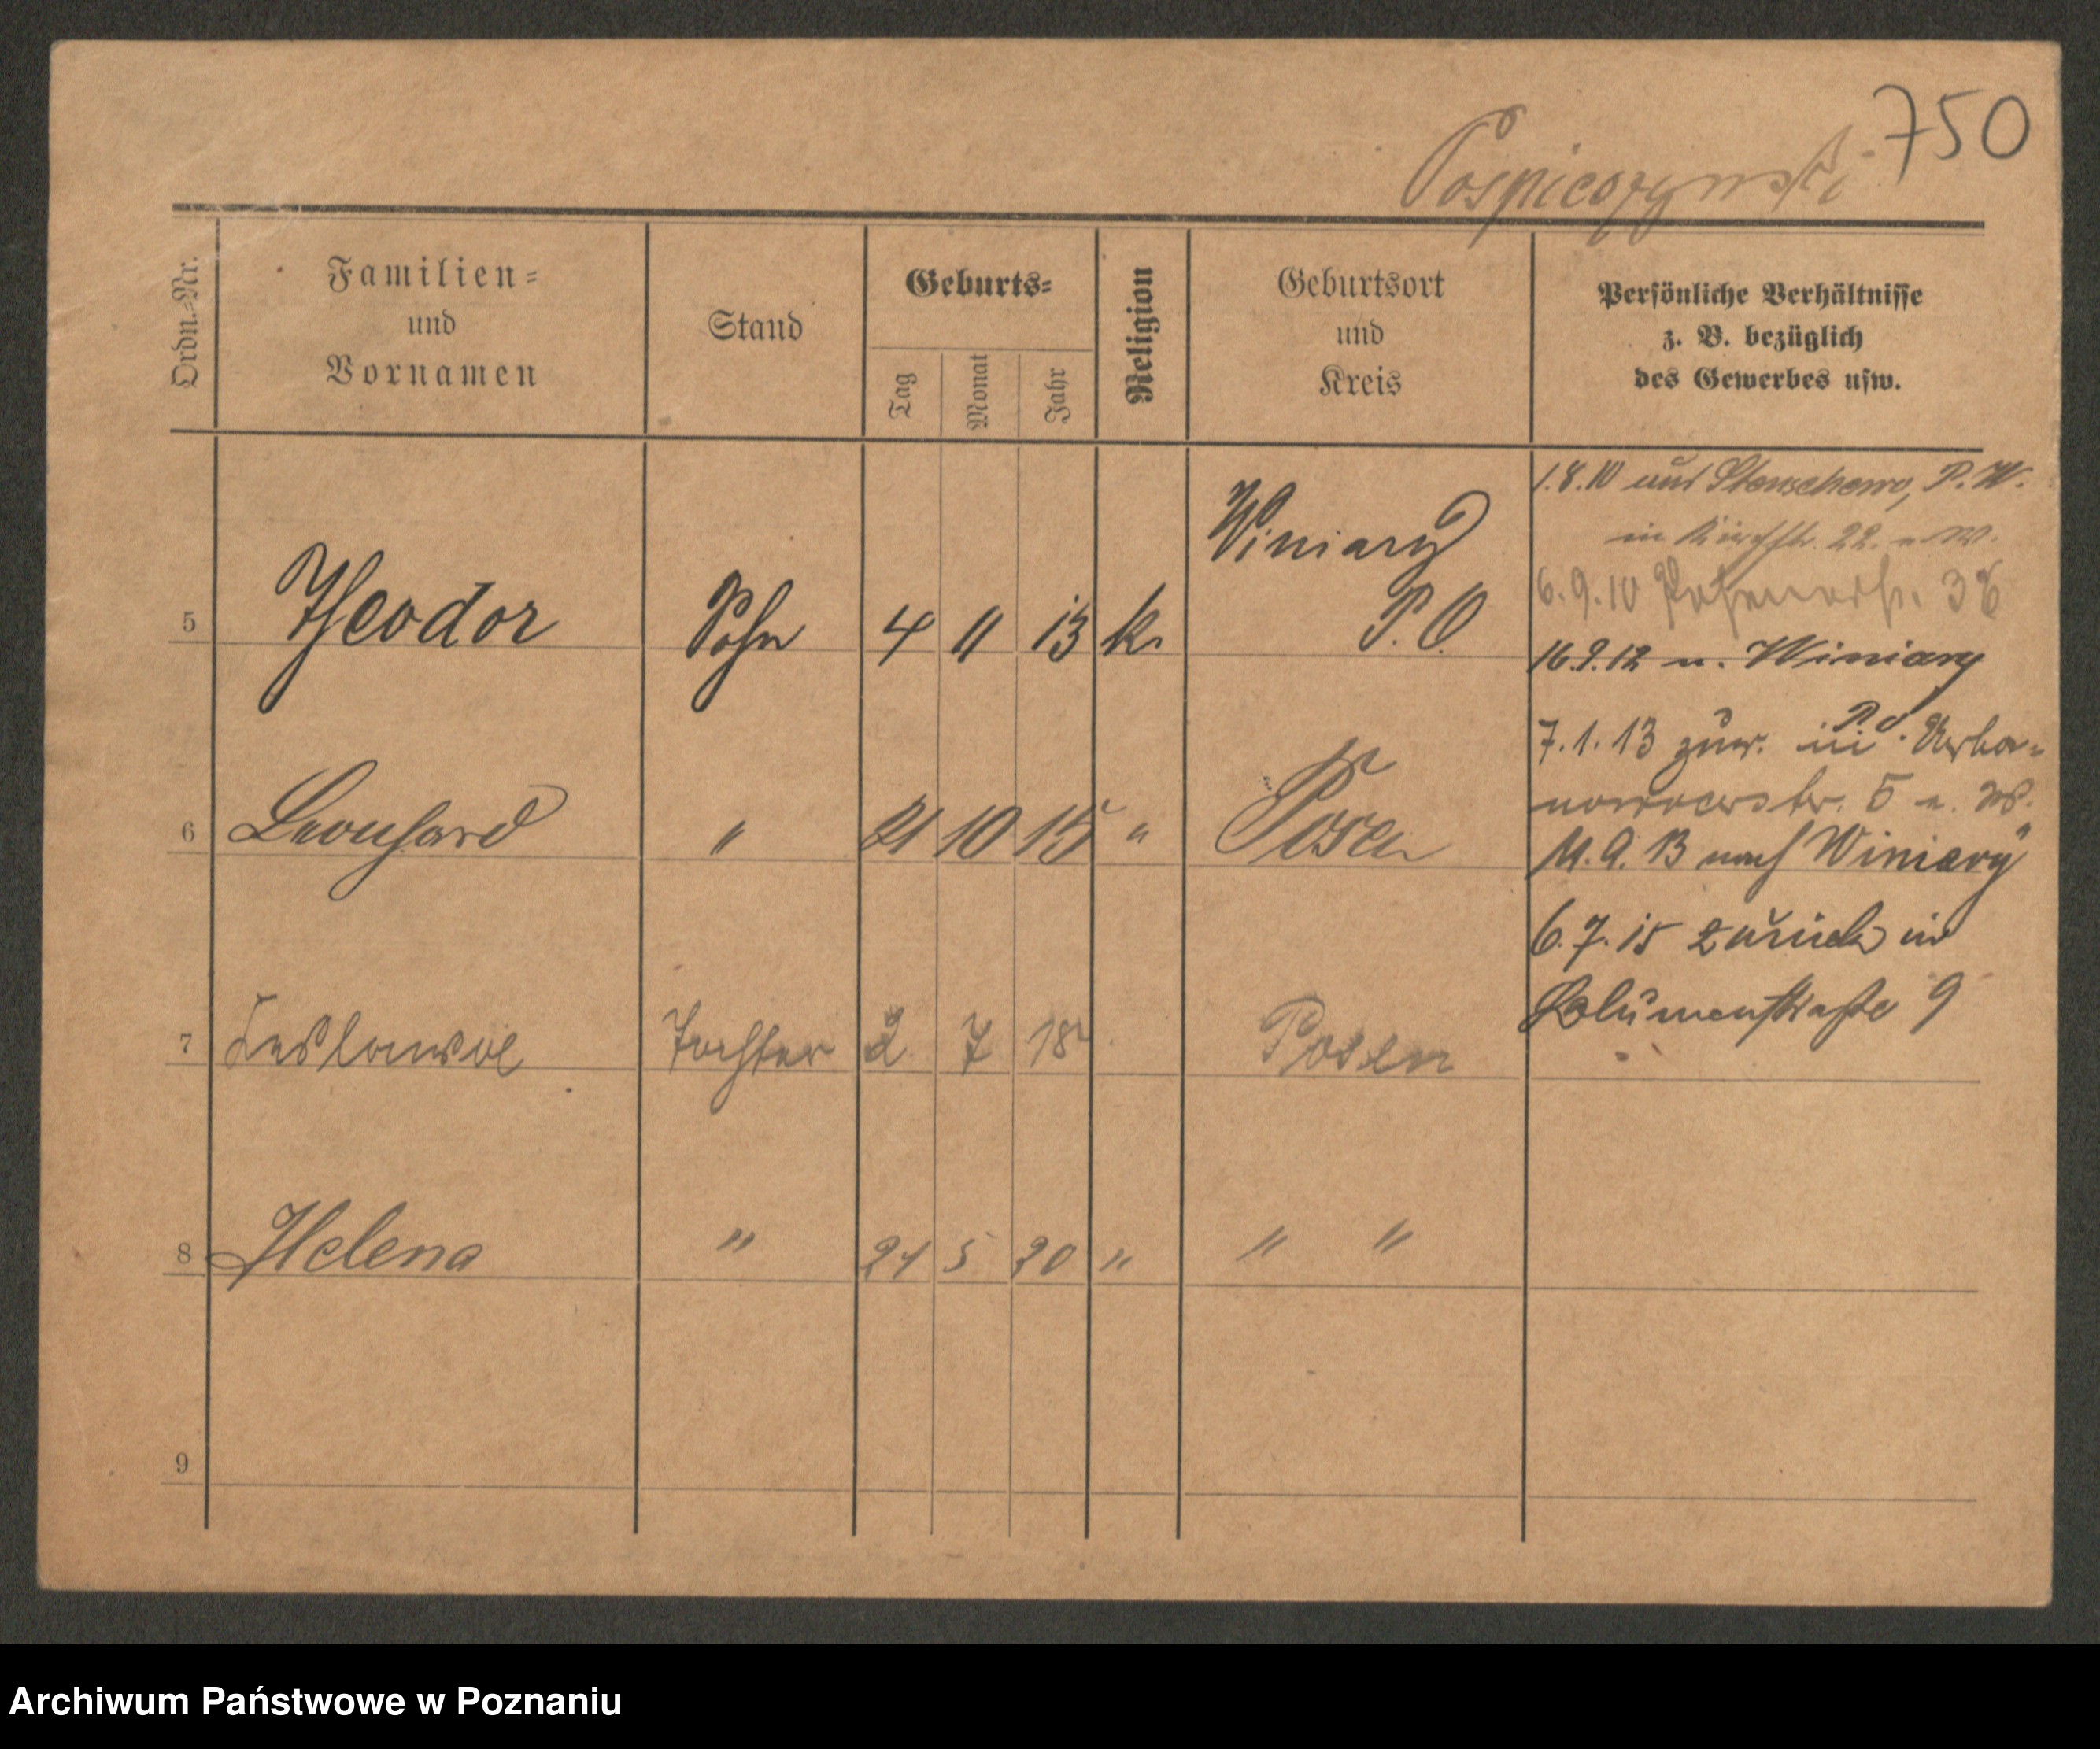 750
Pospieszynski
Ordn.-Nr.
Familien-
und
Vornamen
Stand
Geburts-
Tag
Monat
Jahr
Religion
Geburtsort
und
Kreis
Persönliche Verhältnisse
z. B. bezüglich
des Gewerbes usw.
5 Theodor Sohn 4 11 13 k. Winiary
P. O.
6 Leonhard " 21 10 15 " Posen
7 Tochter 2 7 18 Posen
8 Helena " 24 5 20 " " "
9
1.8.10 aus Stenschewo, P. W.
in Kirchstr. 22. u. W.
6.9.10 Posenerstr. 38
16.9.12 n. Winiary
P. O.
7.1.13 zur. in Urba-
nowoerstr. 5 u. W.
11.9.13 nach Winiary
6.7.15 zurück in
Blumenstraße 9
Archiwum Państwowe w Poznaniu